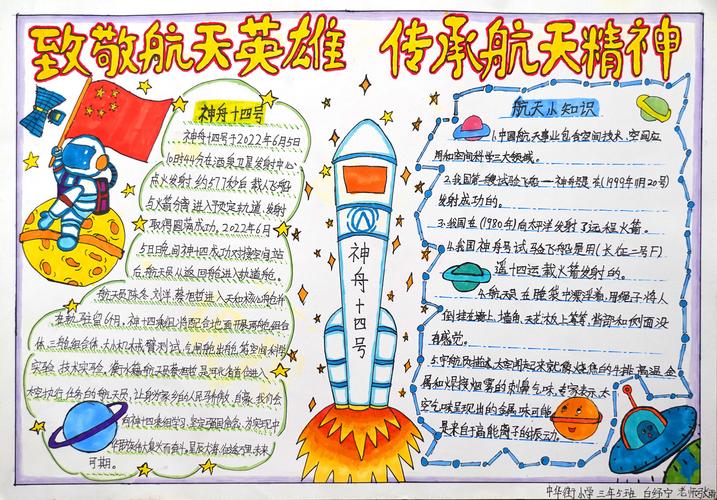 致敬航天英雄 传承航天精神
神舟十四号
神舟十四号于2022年6月5日
10时44分在酒泉卫星发射中心
点火发射,约577秒后,载人飞船
与火箭分离,进入预定轨道,发射
取得圆满成功。2022年6月
5日晚间神十四成功对接空间站
后,航天员从返回舱进入轨道舱。
航天员陈冬、刘洋、蔡旭哲进入天和核心舱
驻留6月,神十四乘组将配合地面开展两舱组合
体、三舱组合体、大小机械臂测试、气闸舱出舱等空间科学
实验、技术实验。
太空执行任务的航天员,让身为家乡的人民
神十四乘组学习,
中华民族伟大复兴而奋斗,星辰大海,
可期。
神舟十四号
航天小知识
1.中国航天事业包含空间技术、空间应
用和空间科学三大领域。
2.我国第一艘试验飞船——神舟号是在(1999年11月20号)
发射成功的。
3.我国在(1980年)向太平洋发射了远程火箭。
4.我国神舟号试验飞船是用(长征二号F)
遥十四运载火箭发射的。
4.航天员在睡袋中漂浮着,用绳子将人
倒挂在墙上、墙角、天花板上等等,背部和侧面没
有感觉。
5.宇航员描述,太空闻起来就像火烧焦的牛排、高温金
属和焊接烟雾的刺鼻气味,专家表示,太
空气味呈现出的金属味可能
是来自于高能离子的振动。
中华街小学 三年5班 白纾宁